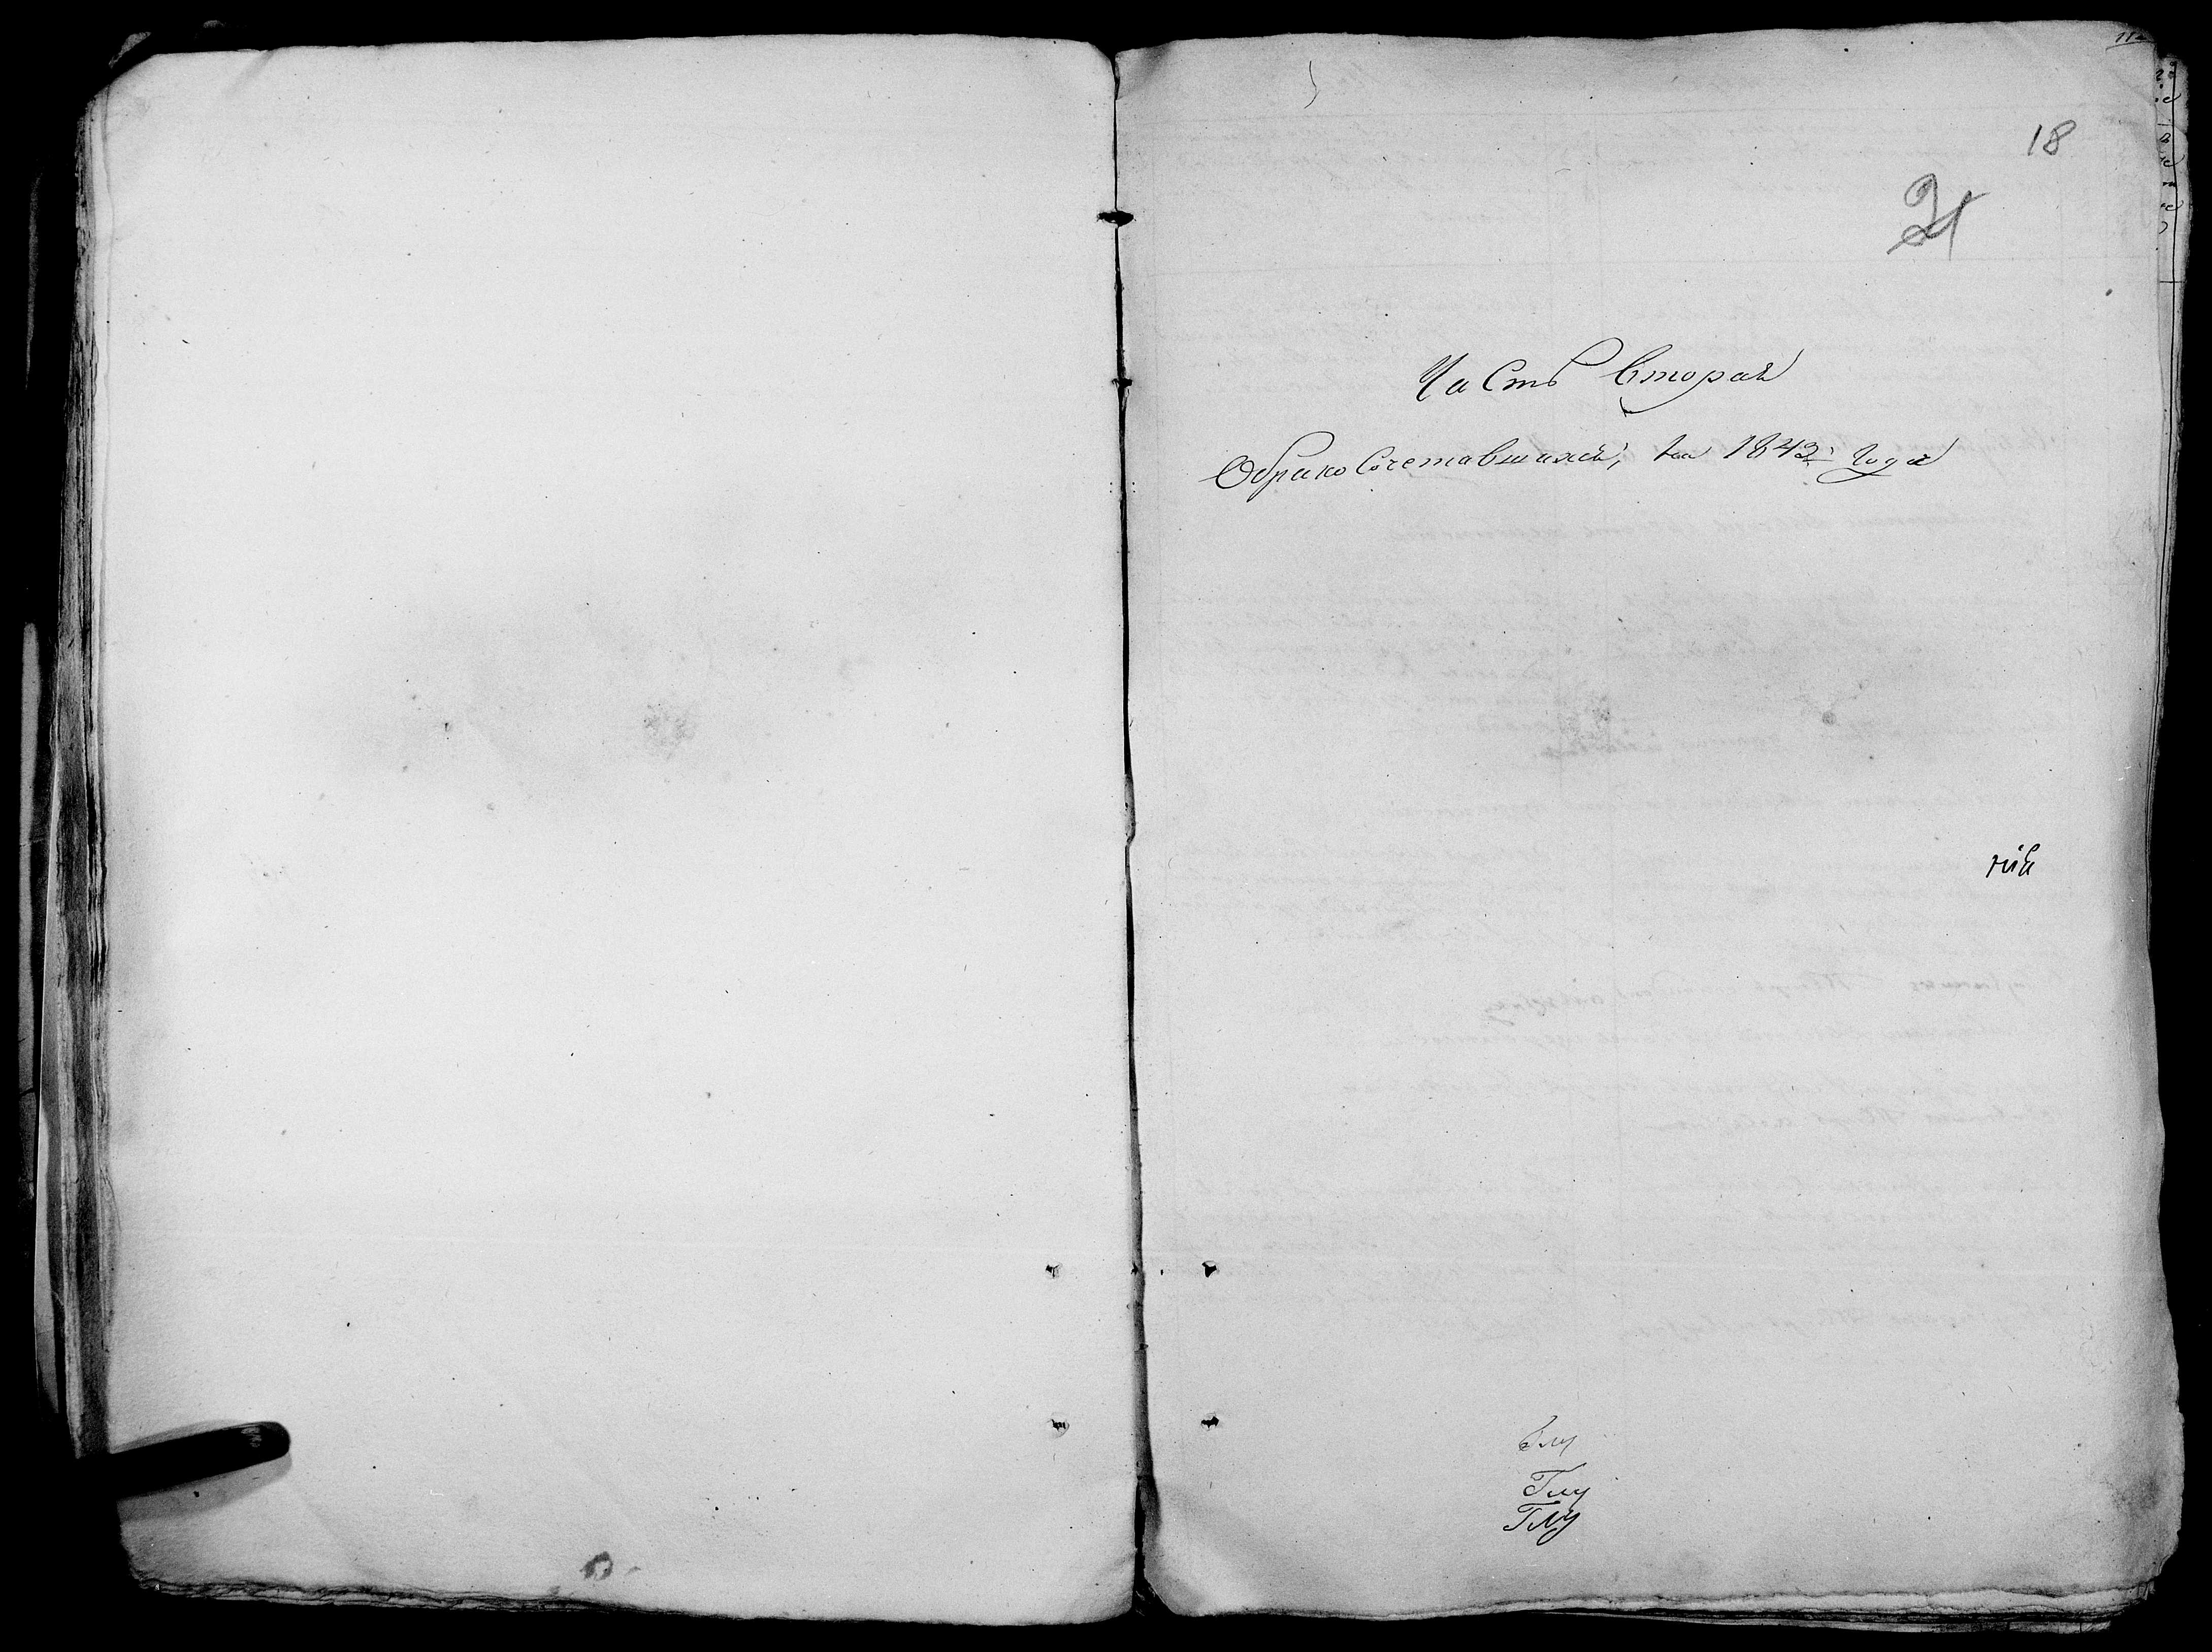 18
21
Часть вторая
О бракосочетавшихся, на 1843: года
ній
Глу
Глу